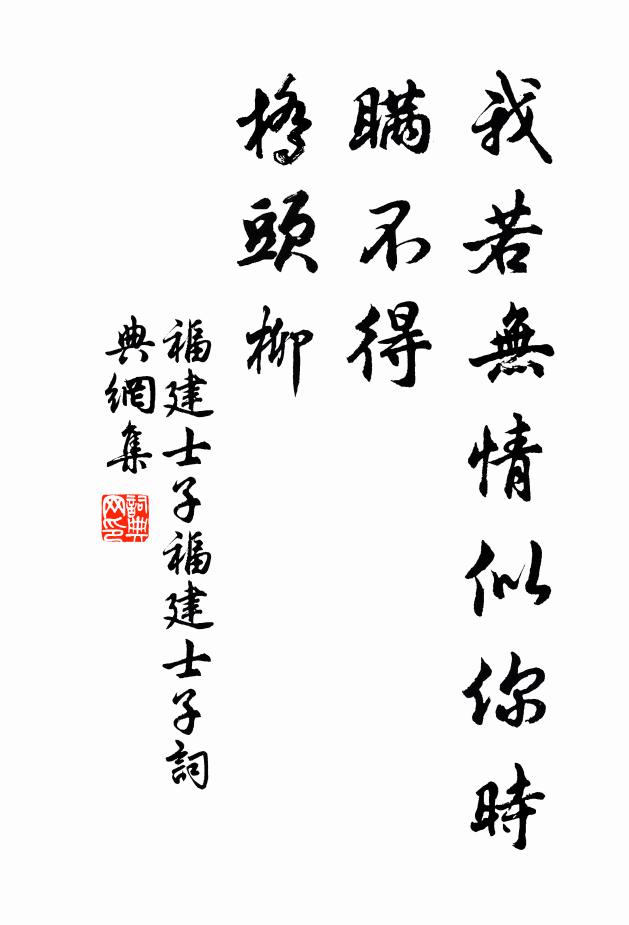 我若無情似你時
瞞不得
橋頭柳
福建士子福建士子詞
典網集
詞典
网印